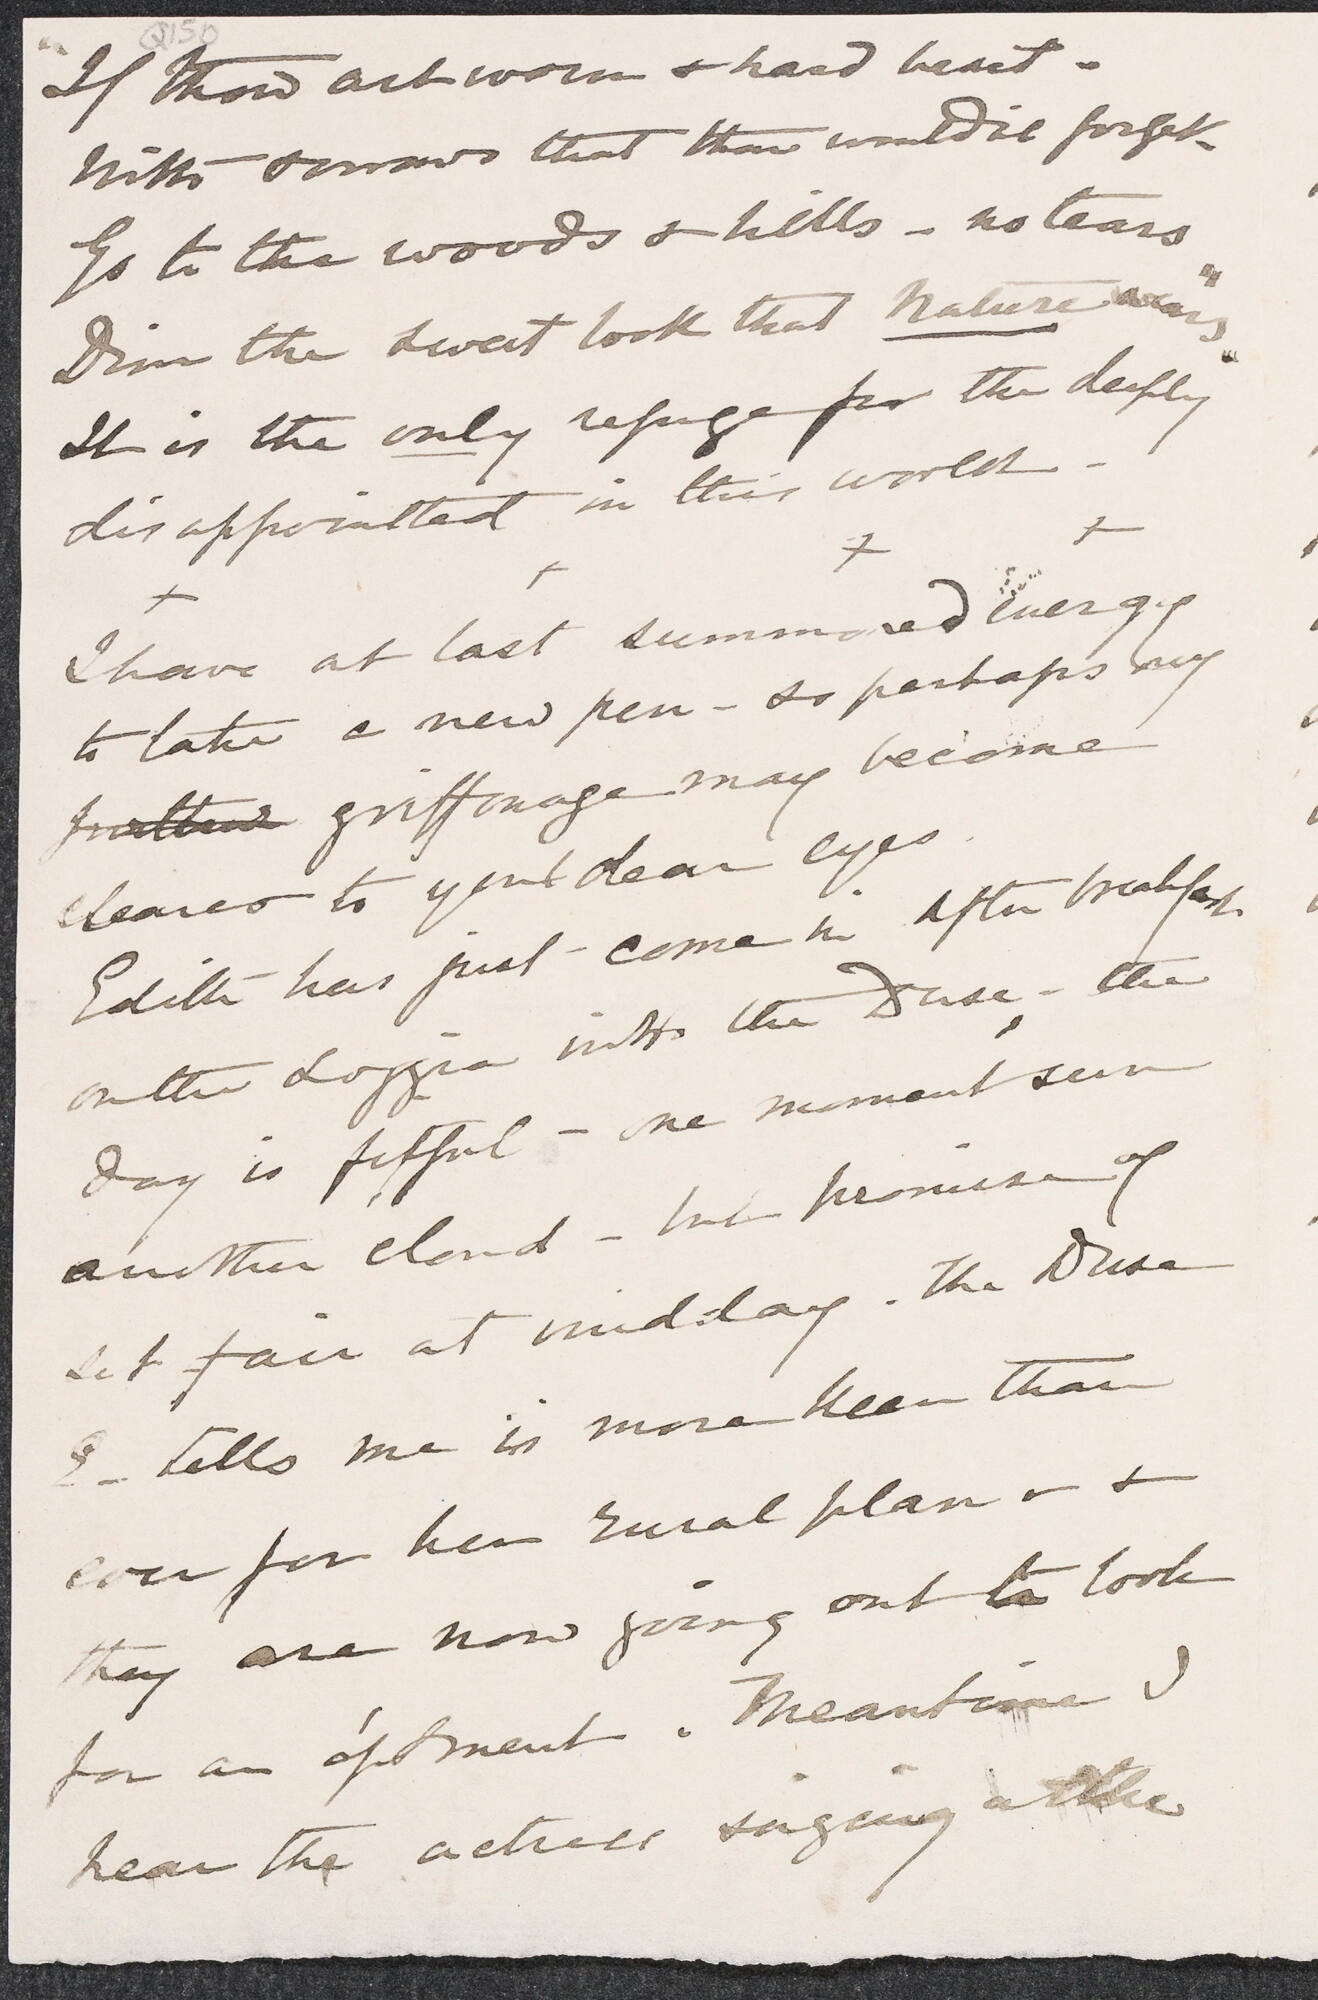 Q150
"If thou art worn & hard beset -
With sorrows that thou wouldst forget -
Go to the woods & hills - no tears
Dim the sweet look that Nature wears"
It is the only refuge for the deeply
disappointed in this world -
+ + + +
I have at last summoned energy
to take a new pen - so perhaps my
further griffonage may become
clearer to your dear eyes.
Edith has just come in after breakfast
on the Loggia with the Duse, - the
day is fitful - one moment sun
another cloud - but promise of
set fair at midday. The Duse
E - tells me is more keen than
ever for her rural plan &
they are now going out to look
for an aptment. Meantime I
hear the actress singing at the